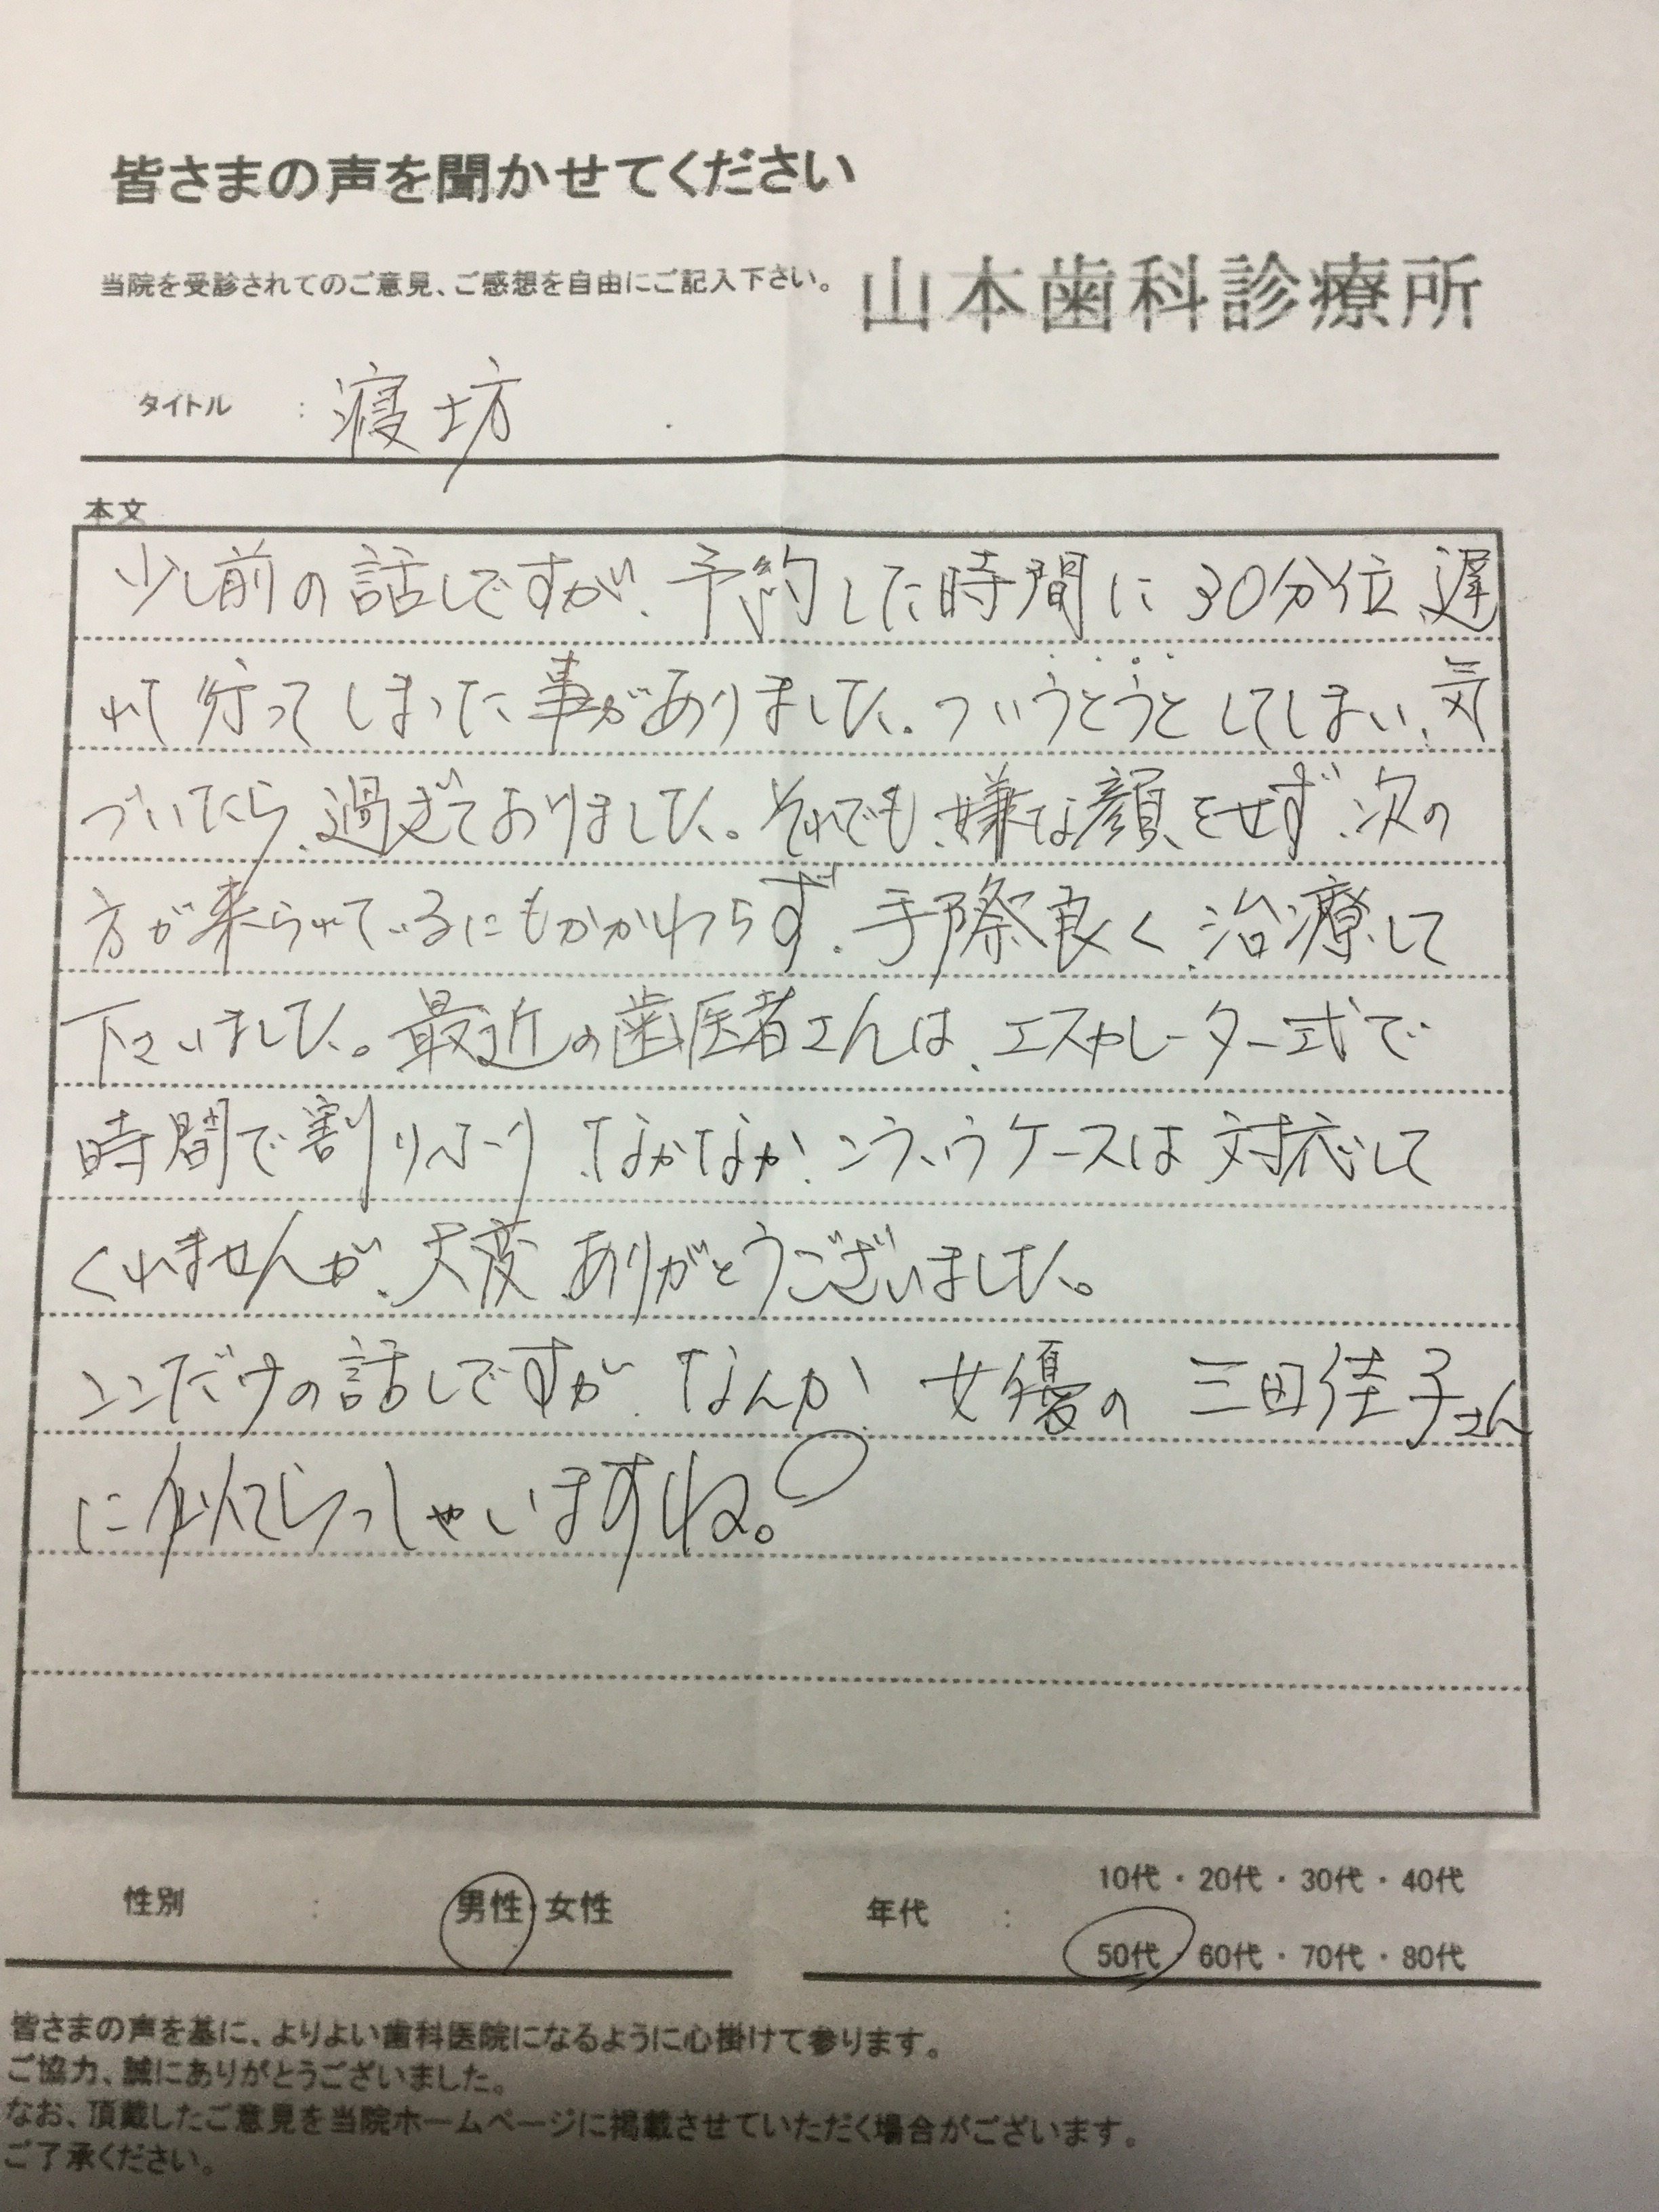 皆さまの声を聞かせてください
当院を受診されてのご意見、ご感想を自由にご記入下さい。 山本歯科診療所
タイトル : 寝坊
本文
少し前の話しですが、予約した時間に30分位、遅
れて行ってしまった事がありました。ついうとうとしてしまい、気
づいたら、過ぎておりました。それでも、嫌な顔をせず、次の
方が来られているにもかかわらず、手際良く、治療して
下さいました。最近の歯医者さんは、エスカレーター式で
時間で割りふり、なかなか、こういうケースは対応して
くれませんが、大変、ありがとうございました。
ここだけの話しですが、なんか、女優の三田佳子さん
に似てらっしゃいますね。
性別 : 男性・女性
年代 : 10代・20代・30代・40代
50代・60代・70代・80代
皆さまの声を基に、よりよい歯科医院になるように心掛けて参ります。
ご協力、誠にありがとうございました。
なお、頂戴したご意見を当院ホームページに掲載させていただく場合がございます。
ご了承ください。